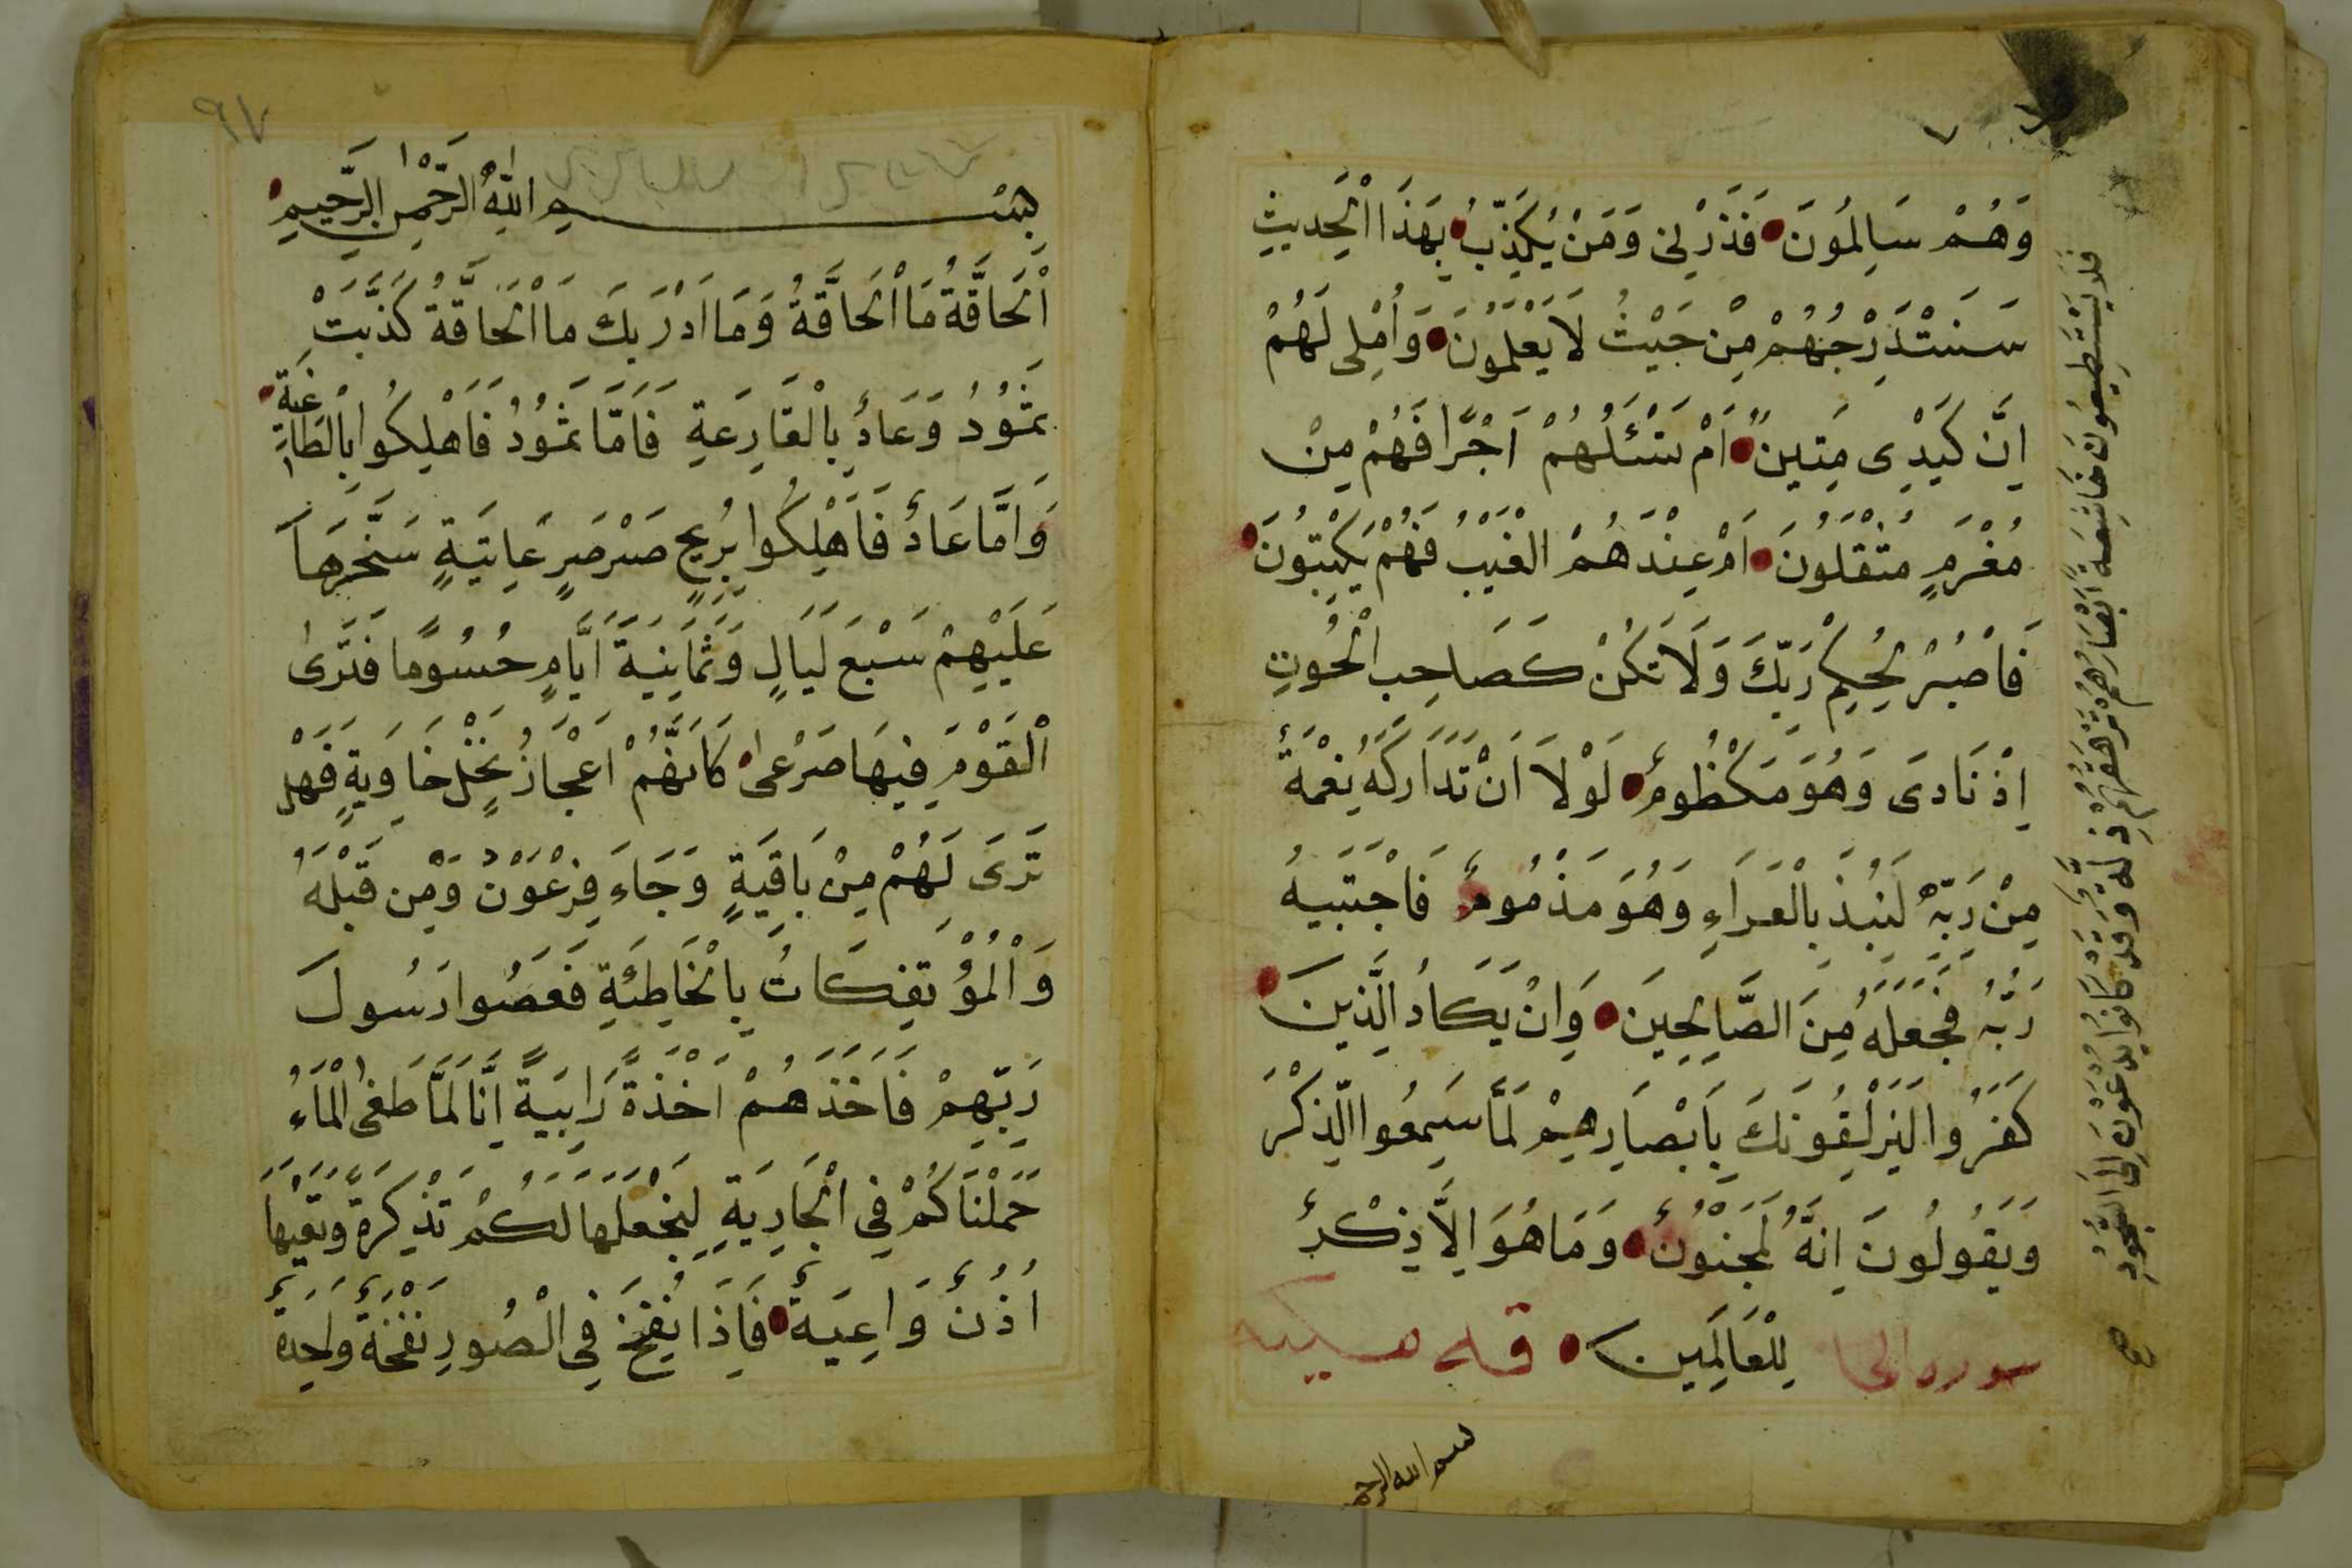 وَهُمْ سَالِمُونَ فَذَرْنِى وَمَنْ يُكَذِّبُ بِهَذَا الْحَدِيثِ
سَنَسْتَدْرِجُهُمْ مِنْ حَيْثُ لَا يَعْلَمُونَ وَأُمْلِى لَهُمْ
اِنَّ كَيْدِى مَتِينٌ اَمْ تَسْئَلُهُمْ اَجْرًا فَهُمْ مِنْ
مَغْرَمٍ مُثْقَلُونَ اَمْ عِنْدَهُمُ الْغَيْبُ فَهُمْ يَكْتُبُونَ
فَاصْبِرْ لِحُكْمِ رَبِّكَ وَلَا تَكُنْ كَصَاحِبِ الْحُوتِ
اِذْ نَادَى وَهُوَ مَكْظُومٌ لَوْلَا اَنْ تَدَارَكَهُ نِعْمَةٌ
مِنْ رَبِّهِ لَنُبِذَ بِالْعَرَاءِ وَهُوَ مَذْمُومٌ فَاجْتَبَيهُ
رَبُّهُ فَجَعَلَهُ مِنَ الصَّالِحِينَ وَاِنْ يَكَادُ الَّذِينَ
كَفَرُوا لَيُزْلِقُونَكَ بِاَبْصَارِهِمْ لَمَّا سَمِعُوا الذِّكْرَ
وَيَقُولُونَ اِنَّهُ لَمَجْنُونٌ وَمَا هُوَ اِلَّا ذِكْرٌ
لِلْعَالَمِينَ
سوره الحا
فَلَا يَسْتَطِيعُونَ خَاشِعَةً اَبْصَارُهُمْ تَرْهَقُهُمْ ذِلَّةٌ وَقَدْ كَانُوا يُدْعَوْنَ اِلَى السُّجُودِ
صح
بسم الله الرحم
٩٧
بِسْمِ اللهِ الرَّحْمٰنِ الرَّحِيمِ
اَلْحَاقَّةُ مَا الْحَاقَّةُ وَمَا اَدْرَيكَ مَا الْحَاقَّةُ كَذَّبَتْ
ثَمُودُ وَعَادٌ بِالْقَارِعَةِ فَاَمَّا ثَمُودُ فَاُهْلِكُوا بِالطَّاغِيَةِ
وَاَمَّا عَادٌ فَاُهْلِكُوا بِرِيحٍ صَرْصَرٍ عَاتِيَةٍ سَخَّرَهَا
عَلَيْهِمْ سَبْعَ لَيَالٍ وَثَمَانِيَةَ اَيَّامٍ حُسُومًا فَتَرَى
الْقَوْمَ فِيهَا صَرْعَى كَاَنَّهُمْ اَعْجَازُ نَخْلٍ خَاوِيَةٍ فَهَلْ
تَرَى لَهُمْ مِنْ بَاقِيَةٍ وَجَاءَ فِرْعَوْنُ وَمَنْ قَبْلَهُ
وَالْمُؤْتَفِكَاتُ بِالْخَاطِئَةِ فَعَصَوْا رَسُولَ
رَبِّهِمْ فَاَخَذَهُمْ اَخْذَةً رَابِيَةً اِنَّا لَمَّا طَغَى الْمَاءُ
حَمَلْنَاكُمْ فِى الْجَارِيَةِ لِنَجْعَلَهَا لَكُمْ تَذْكِرَةً وَتَعِيَهَا
اُذُنٌ وَاعِيَةٌ فَاِذَا نُفِخَ فِى الصُّورِ نَفْخَةٌ وَاحِدَةٌ